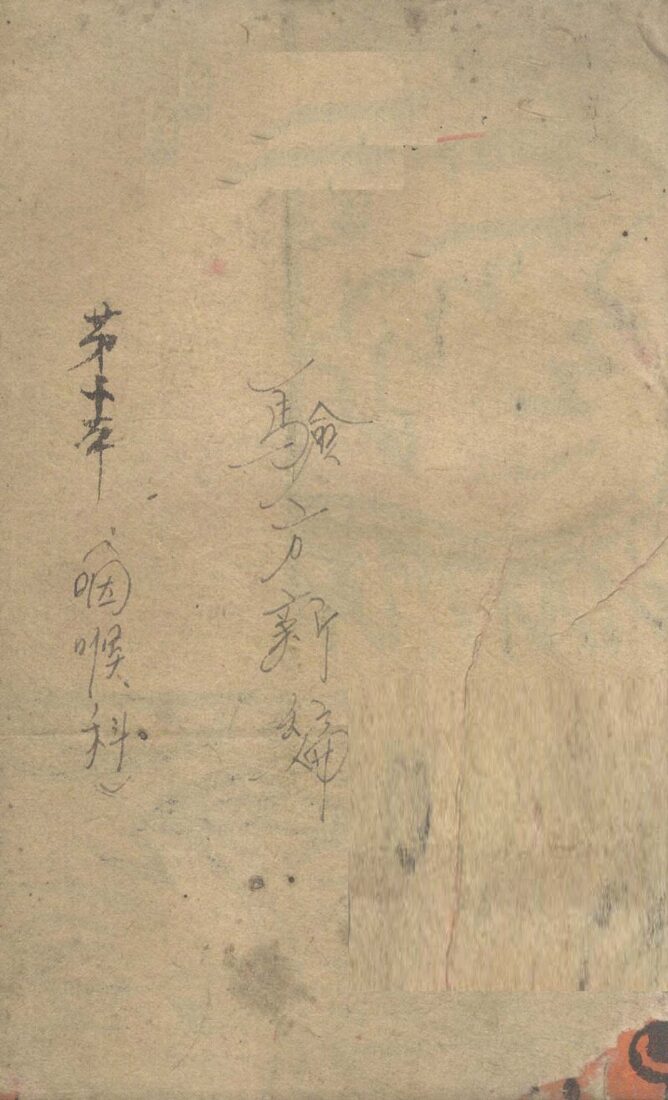 驗方新編
苐十本（咽喉科）